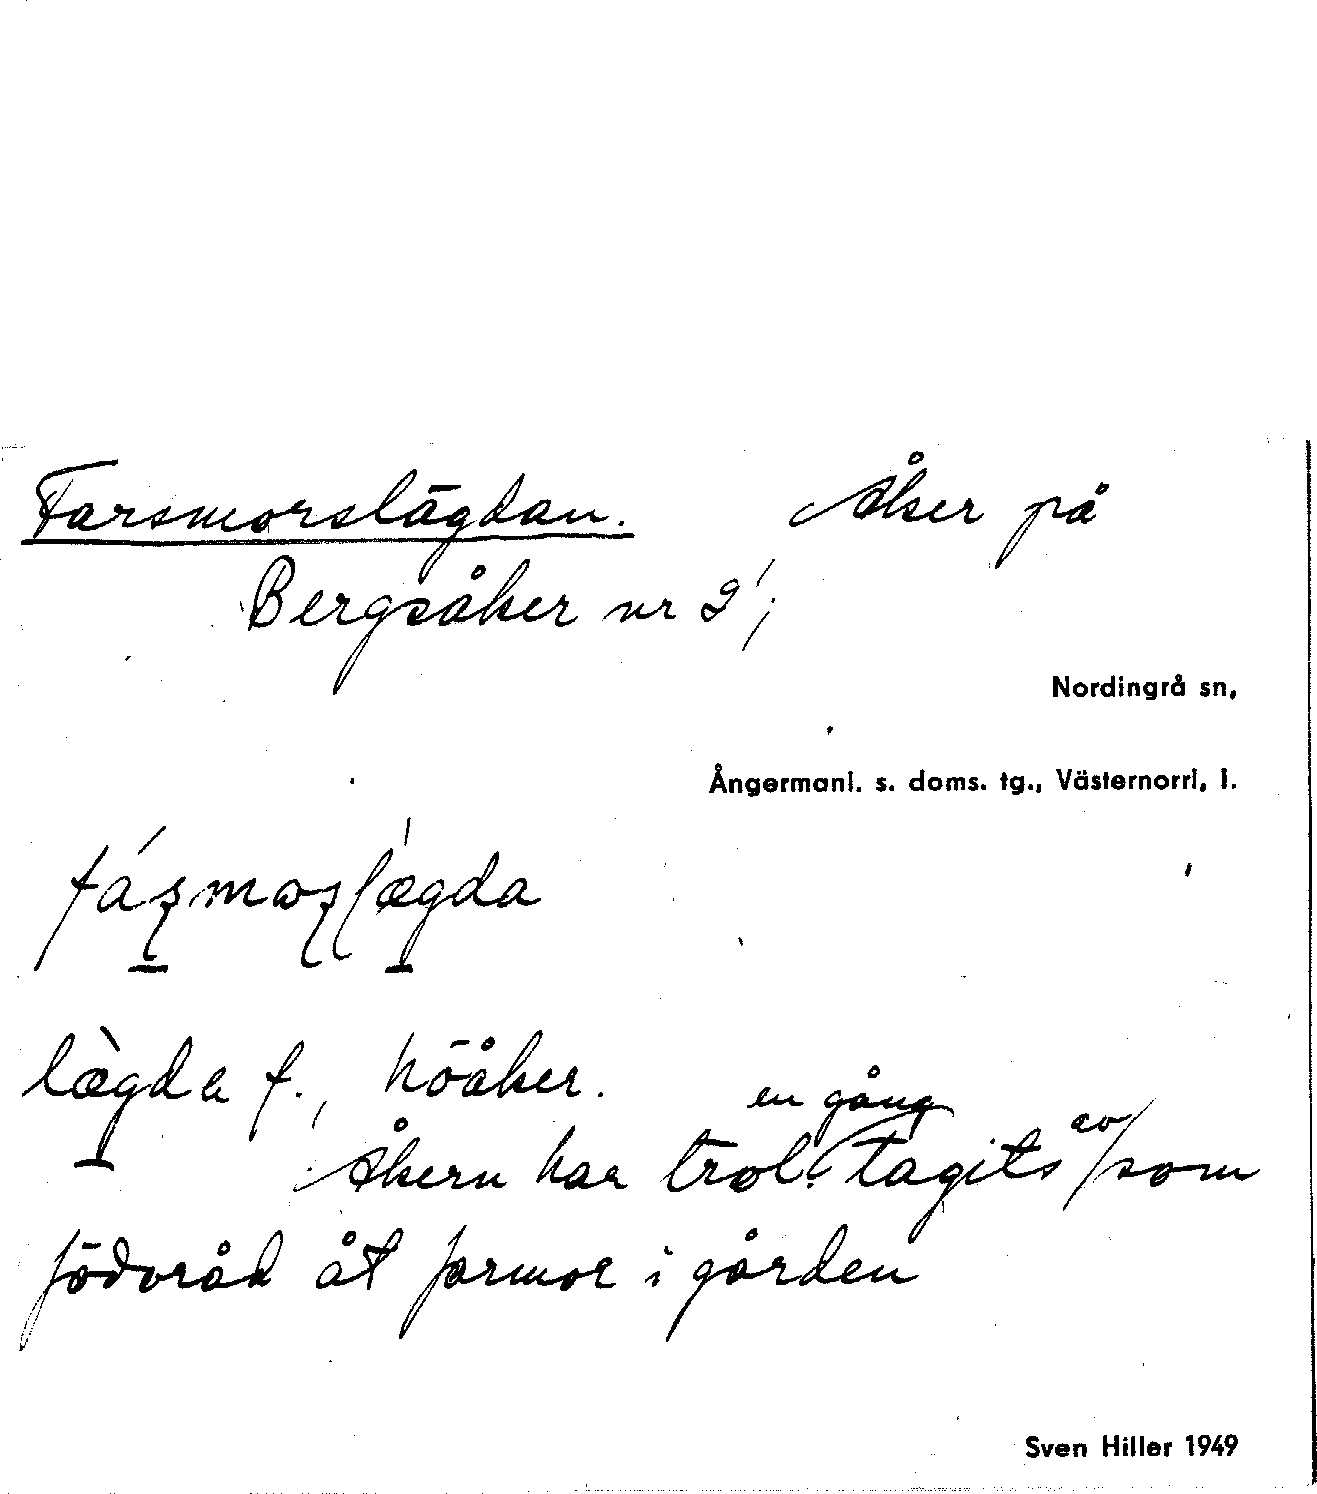 Farsmorslägdan. Åker på
Bergsåker nr 2¹;
Nordingrå sn,
Ångermanl. s. doms. tg., Västernorrl. l.
lægda f., höåker.
Åkern har trol. en gång tagits av som
födoråd åt farmor i gården
Sven Hiller 1949